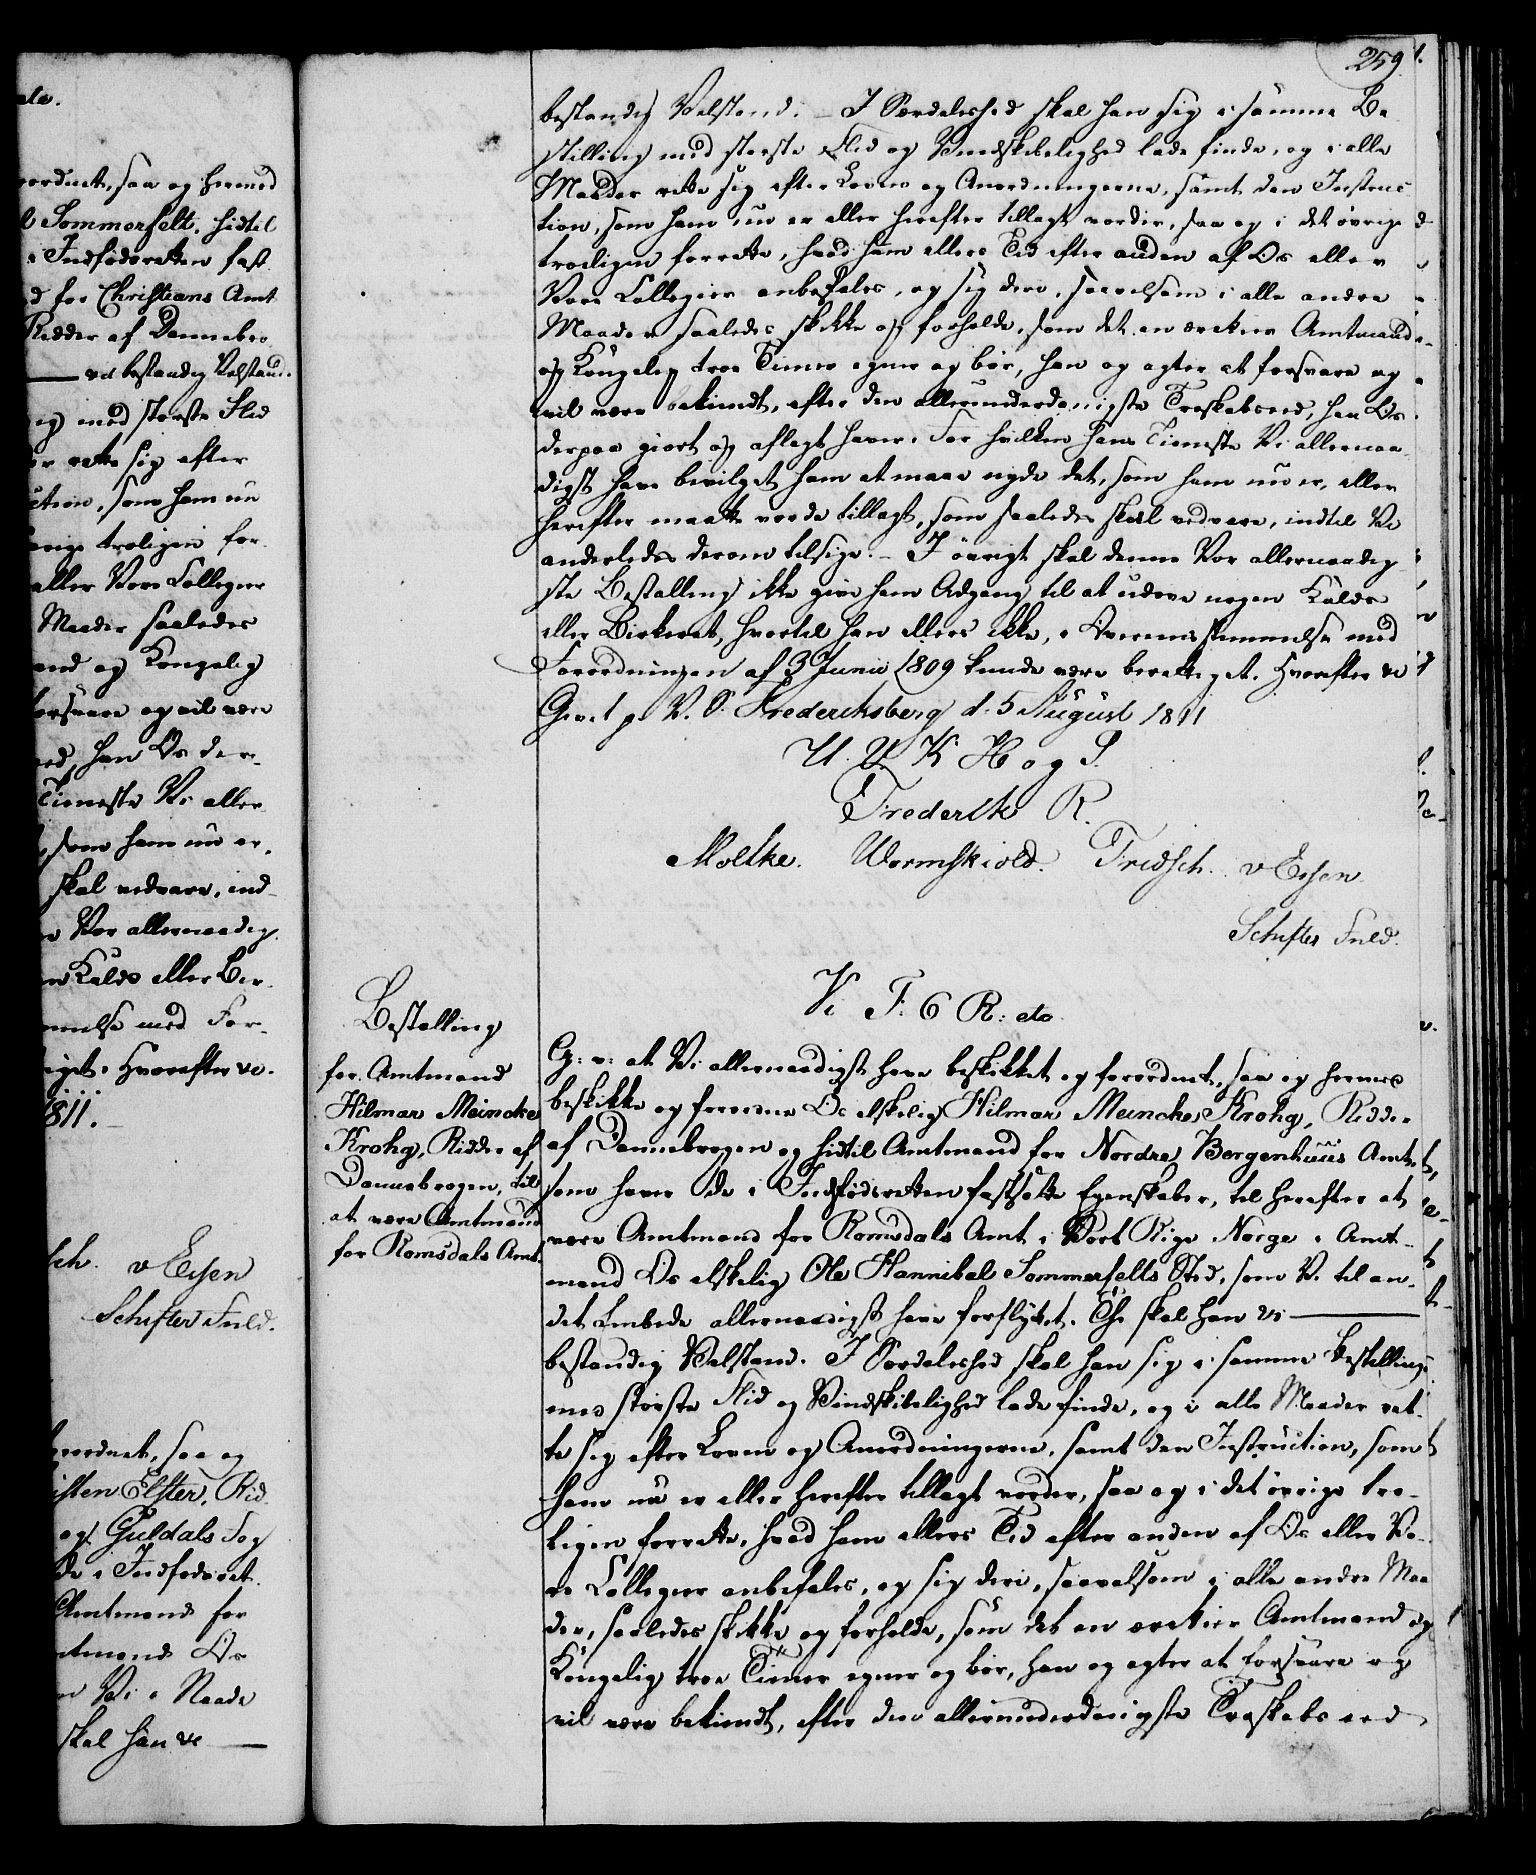 259
bestandig Velstand. – I Særdeleshed skal han sig i samme Be
stilling med største Flid og Vindskibelighed lade finde, og i alle
Maader rette sig efter Loven og Anordningerne, samt den Instruc
tion, som ham nu er eller herefter tillagt vorder, saa og i det øvrige
troeligen forrette, hvad ham ellers Tid efter anden af Os eller
Vore Collegier anbefales, og sig deri, saavelsom i alle andre
Maader saaledes skikke og forholde, som det en ærekier Amtmand
og Kongelig troe Tiener egner og bør, han og agter at forsvare og
vil være bekiendt, efter den allerunderdanigste Troskabseed, han Os
derpaa giort og aflagt haver. For hvilken hans Tieneste Vi allernaa
digst have bevilget ham at maae nyde det, som ham nu er, eller
herefter maatte vorde tillagt, som saaledes skal vedvare, indtil Vi
anderledes derom tilsige. – I øvrigt skal denne Vor allernaadig
ste Bestalling ikke give ham Adgang til at udøve nogen Kalds
eller Birkeret, hvortil han ellers ikke, i Overeensstemmelse med
Forordningen af 3 Junii 1809 kunde være berettiget. Hvorefter ve
Givet p. V. S. Frederiksberg d. 5 August 1811
U. V. K H og S.
Frederik R.
Moltke. Wormskiold. Fridsch. v Essen
Schifter Fuld.
Bestalling
for Amtmand
Hilmar Meincke
Krohg, Ridder af
Dannebrogen, til
at være Amtmand
for Romsdals Amt.
Vi F: 6 R: etc
G: v: at Vi allernaadigst have beskikket og forordnet, saa og hermed
beskikke og forordne Os elskelig Hilmar Meincke Krohg, Ridder
af Dannebrogen og hidtil Amtmand for Nordre Bergenhuus Amt,
som haver de i Indfødsretten fastsatte Egenskaber, til herefter at
være Amtmand for Romsdals Amt i Vort Rige Norge i Amt-
mand Os elskelig Ole Hannibal Sommerfelts Sted, som Vi til an-
det Embede allernaadigst have forflyttet. Thi skal han ve —
bestandig Velstand. I Særdeleshed skal han sig i samme Bestilling
med største Flid og Vindskibelighed lade finde, og i alle Maader ret-
te sig efter Loven og Anordningerne, samt den Instruction, som
ham nu er eller herefter tillagt vorder, saa og i det øvrige tro-
ligen forrette, hvad ham ellers Tid efter anden af Os eller Vo-
re Collegier anbefales, og sig deri, saavelsom i alle andre Maa
der, saaledes skikke og forholde, som det en ærekier Amtmand og
Kongelig troe Tiener egner og bør, han og agter at forsvare og
vil være bekiendt, efter den allerunderdanigste Troskabs eed
ordnet, saa og hermed
Sommerfelt, hidtil
i Indfødsretten fast
for Christians Amt
Ridder af Dannebro
— ved bestandig Velstand.
med største Flid
rette sig efter
som ham nu
troligen for
eller Vore Collegier
Maader saaledes
og Kongelig
forsvare og vil være
han Os der-
Tieneste Vi aller
som ham nu er,
skal vedvare, ind-
Vor allernaadig
Kalds eller Bir-
med For-
Hvorefter ve.
1811.
v Essen
Schifter Fuld.
saa og
Elster, Rid
og Guldals Fog
de i Indfødsret
Amtmand for
Os
Vi i Naade
skal han ve —